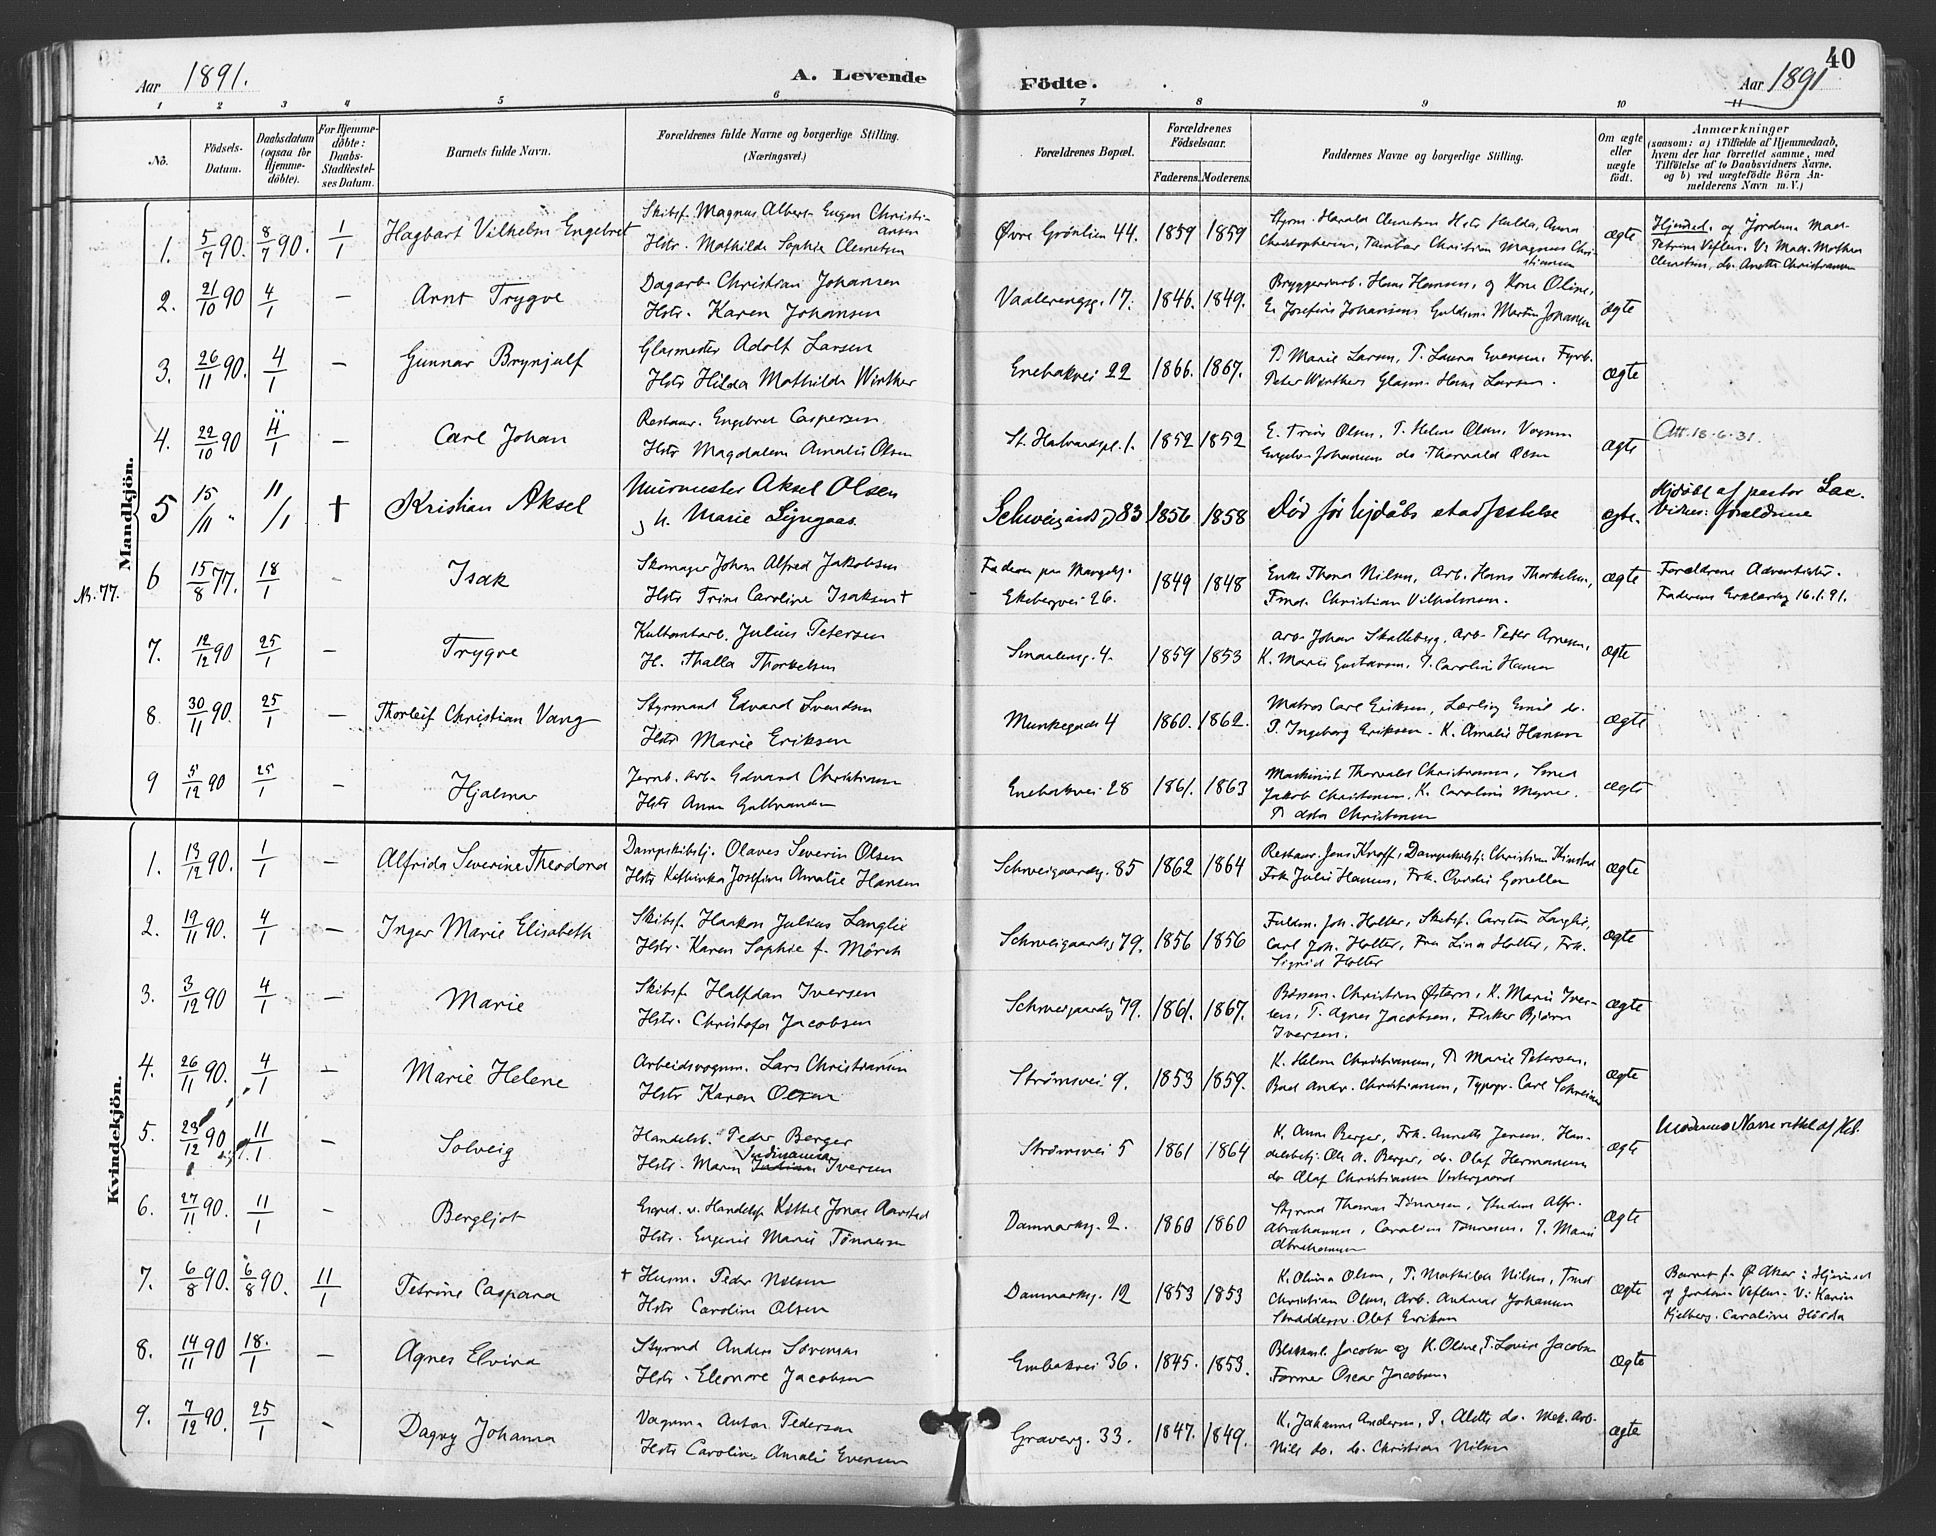 40
Aar 1891.
A. Levende
Födte.
Aar 1891
1 2 3 4 5 6 7 8 9 10 11
No.
Födsels-Datum.
Daabsdatum (ogsaa for Hjemme-döbte).
For Hjemme-döbte: Daabs-Stadfæstel-ses Datum.
Barnets fulde Navn.
Forældrenes fulde Navne og borgerlige Stilling.
(Næringsvei.)
Forældrenes Bopæl.
Forældrenes Födselsaar.
Faderens. Moderens.
Faddernes Navne og borgerlige Stilling.
Om ægte eller uægte födt.
Anmærkninger
(saasom: a) i Tilfælde af Hjemmedaab,
hvem der har forrettet samme, med
Tilföielse af to Daabsvidners Navne.
og b) ved uægtefödte Börn An-
melderens Navn m.V.)
Mandkjön.
1. 5/7 90. 8/7 90. 1/1 Hagbart Vilhelm Engebret
Skibsf. Magnus Albert Eugen Christiansen
Hstr. Mathilde Sophie Clemetsen
Øvre Grönlien 44. 1859 1859
Styrm. Harald Clemetsen Hstr Hulda, Anna
Christophersen, Tambur Christian Magnus Christiansen
ægte
Hjemmed. og Jordem. Mad.
Petrine Veflen. V: Mad. Mathea
Clemetsen, do. Anette Christiansen
2. 21/10 90 4/1 — Arnt Trygve
Dagarb. Christian Johansen
Hstr. Karen Johansen
Vaalerengg. 17. 1846. 1849.
Bryggeriarb. Hans Hansen, og Kone Oline,
E. Josefine Johansens Guldsm. Martin Johansen
ægte
3. 26/11 90. 4/1 — Gunnar Brynjulf
Glasmester Adolf Larsen
Hstr Hilda Mathilde Winther
Enebakvei 22 1866. 1867.
P. Marie Larsen, P. Laura Evensen, Fyrb.
Peter Winther Glasm. Hans Larsen.
ægte
4. 22/10 90 4/1 — Carl Johan
Restaur. Engebret Caspersen
Hstr Magdalene Amalie Olsen
St. Halvardspl. 1. 1852 1852
E. Trine Olsen, P. Helene Olsen, Vognm
Engebr. Johansen do Thorvald Olsen
ægte
Att. 18.6.31.
5 15/11 " 11/1 † Kristian Aksel
Murmester Aksel Olsen
og h. Marie Lyngaas.
Schweigårdsg 83 1856 1858
Död før hjdåbs stadfestelse
ægte.
Hjdøbt af pastor Lac.
Vidner: forældrene
Nr. 77.
6 15/8 77. 18/1 - Isak
Skomager Johan Alfred Jakobsen
Hstr Trine Caroline Isaksen †
Ekebergvei 26. 1849 1848
Enke Thona Nilsen, Arb. Hans Thorkelsen,
Tmd. Christian Vilhelmsen.
ægte
Forældrene Adventister.
Faderens Erklæring 16.1.91.
7. 12/12 90 25/1 - Trygve
Kulkantarb. Julius Petersen
H. Thalla Thorkelsen
Smaalensg. 4. 1859 1853
Arb. Johan Skalleberg, Arb. Peter Arnesen,
K. Marie Gustavsen, P. Caroline Hansen
ægte
8. 30/11 90. 25/1 — Thorleif Christian Vang
Styrmand Edvard Svendsen
Hstr Marie Eriksen
Munkegade 4 1860. 1862.
Matros Carl Eriksen, Lærling Emil do.
P. Ingeborg Eriksen. K. Amalie Hansen
ægte
9 5/12 90 25/1 - Hjalmar
Jernb. arb. Edvard Christiansen
Hstr Anna Gulbrandsen
Enebakvei 28 1861. 1863
Maskinist Thorvald Christiansen, Smed
Jakob Christensen. K. Caroline Meyer.
P. Asta Christensen
ægte
Kvindekjön.
1. 13/12 90. 1/1 — Alfrida Severine Theodora
Dampskibstj. Olaves Severin Olsen
Hstr Kathinka Josefine Amalie Hansen
Schweigaardsg. 85 1862 1864
Restaur. Jens Knoff, Dampskibstj. Christian
Frk Julie Hansen, Frk.
ægte
2. 19/11 90. 4/1 — Inger Marie Elisabeth
Skibsf. Haakon Julius Langlie
Hstr. Karen Sophie f. Mörch
Schweigaardsg 79. 1856 1856
Fuldm. Joh. Holter, Skibsf. Carsten Langlie,
Carl Joh. Holter, Fru Lina Holter, Frk.
Sigrid Holter
ægte
3. 3/12 90 4/1 — Marie
Skibsf Halfdan Iversen
Hstr. Christofa Jacobsen
Schweigaardsg 79. 1861. 1867.
Bössem. Christian Østern, K. Marie Iver-
sen, P. Agnes Jacobsen, Fisker Björn
Iversen.
ægte
4. 26/11 90. 4/1 — Marie Helene
Arbeidsvognm. Lars Christiansen
Hstr Karen Olsen
Strömsvei 9. 1853 1859.
K. Helene Christiansen, P. Marie Petersen,
Bud Andr. Christiansen, Typogr. Carl
ægte
5. 23/12 90 11/1 - Solveig
Handelsb. Peder Berger
Hstr. Maren Iversen
Strömsvei 5 1861 1864
K. Anne Berger, Frk. Annette Jensen, Han-
delsbetj. Ole A. Berger, do. Olaf Hermansen
do Olaf Christiansen Vestergaard
ægte
Moderens Navn rettet af Kst.
6. 27/11 90. 11/1 - Bergljot
v. Handelsf. Kittel Jonas Aarstad
Hstr. Eugenie Marie Tönnesen
Danmarksg. 2. 1860 1860
Styrmd Thomas Tönnesen, Student Alfr.
Abrahamsen, Caroline Tönnesen, P. Marie
Abrahamsen
ægte
7. 6/8 90. 6/8 90. 11/1 Petrine Caspara
† Husm. Peder Nilsen
Hstr Caroline Olsen
Danmarksg. 12 1853 1853
K. Olina Olsen, P. Mathilde Nilsen, Tmd
Christian Olsen, Arb. Andreas Johansen
Skræddersv. Olaf Eriksen
ægte
Barnet f. Ø. Aker: Hjemmed
og Jordem. Veflen. V: Karin
Kjelberg. Caroline
8. 14/11 90 18./1 — Agnes Elvira
Styrmd Anders Sörensen
Hstr. Eleonore Jacobsen
Enebakvei 36. 1845. 1853.
Jacobsen og K. Oline, P. Lovise Jacobsen
Former Oscar Jacobsen
ægte
9. 7/12 90. 25/1 - Dagny Johanna
Vognm. Anton Pedersen
Hstr Caroline Amalie Evensen
Graverg. 33. 1847. 1849.
K. Johanne Andersen, P. Alette do. Mek. Arb.
Nils do. do. Christian Nilsen
ægte